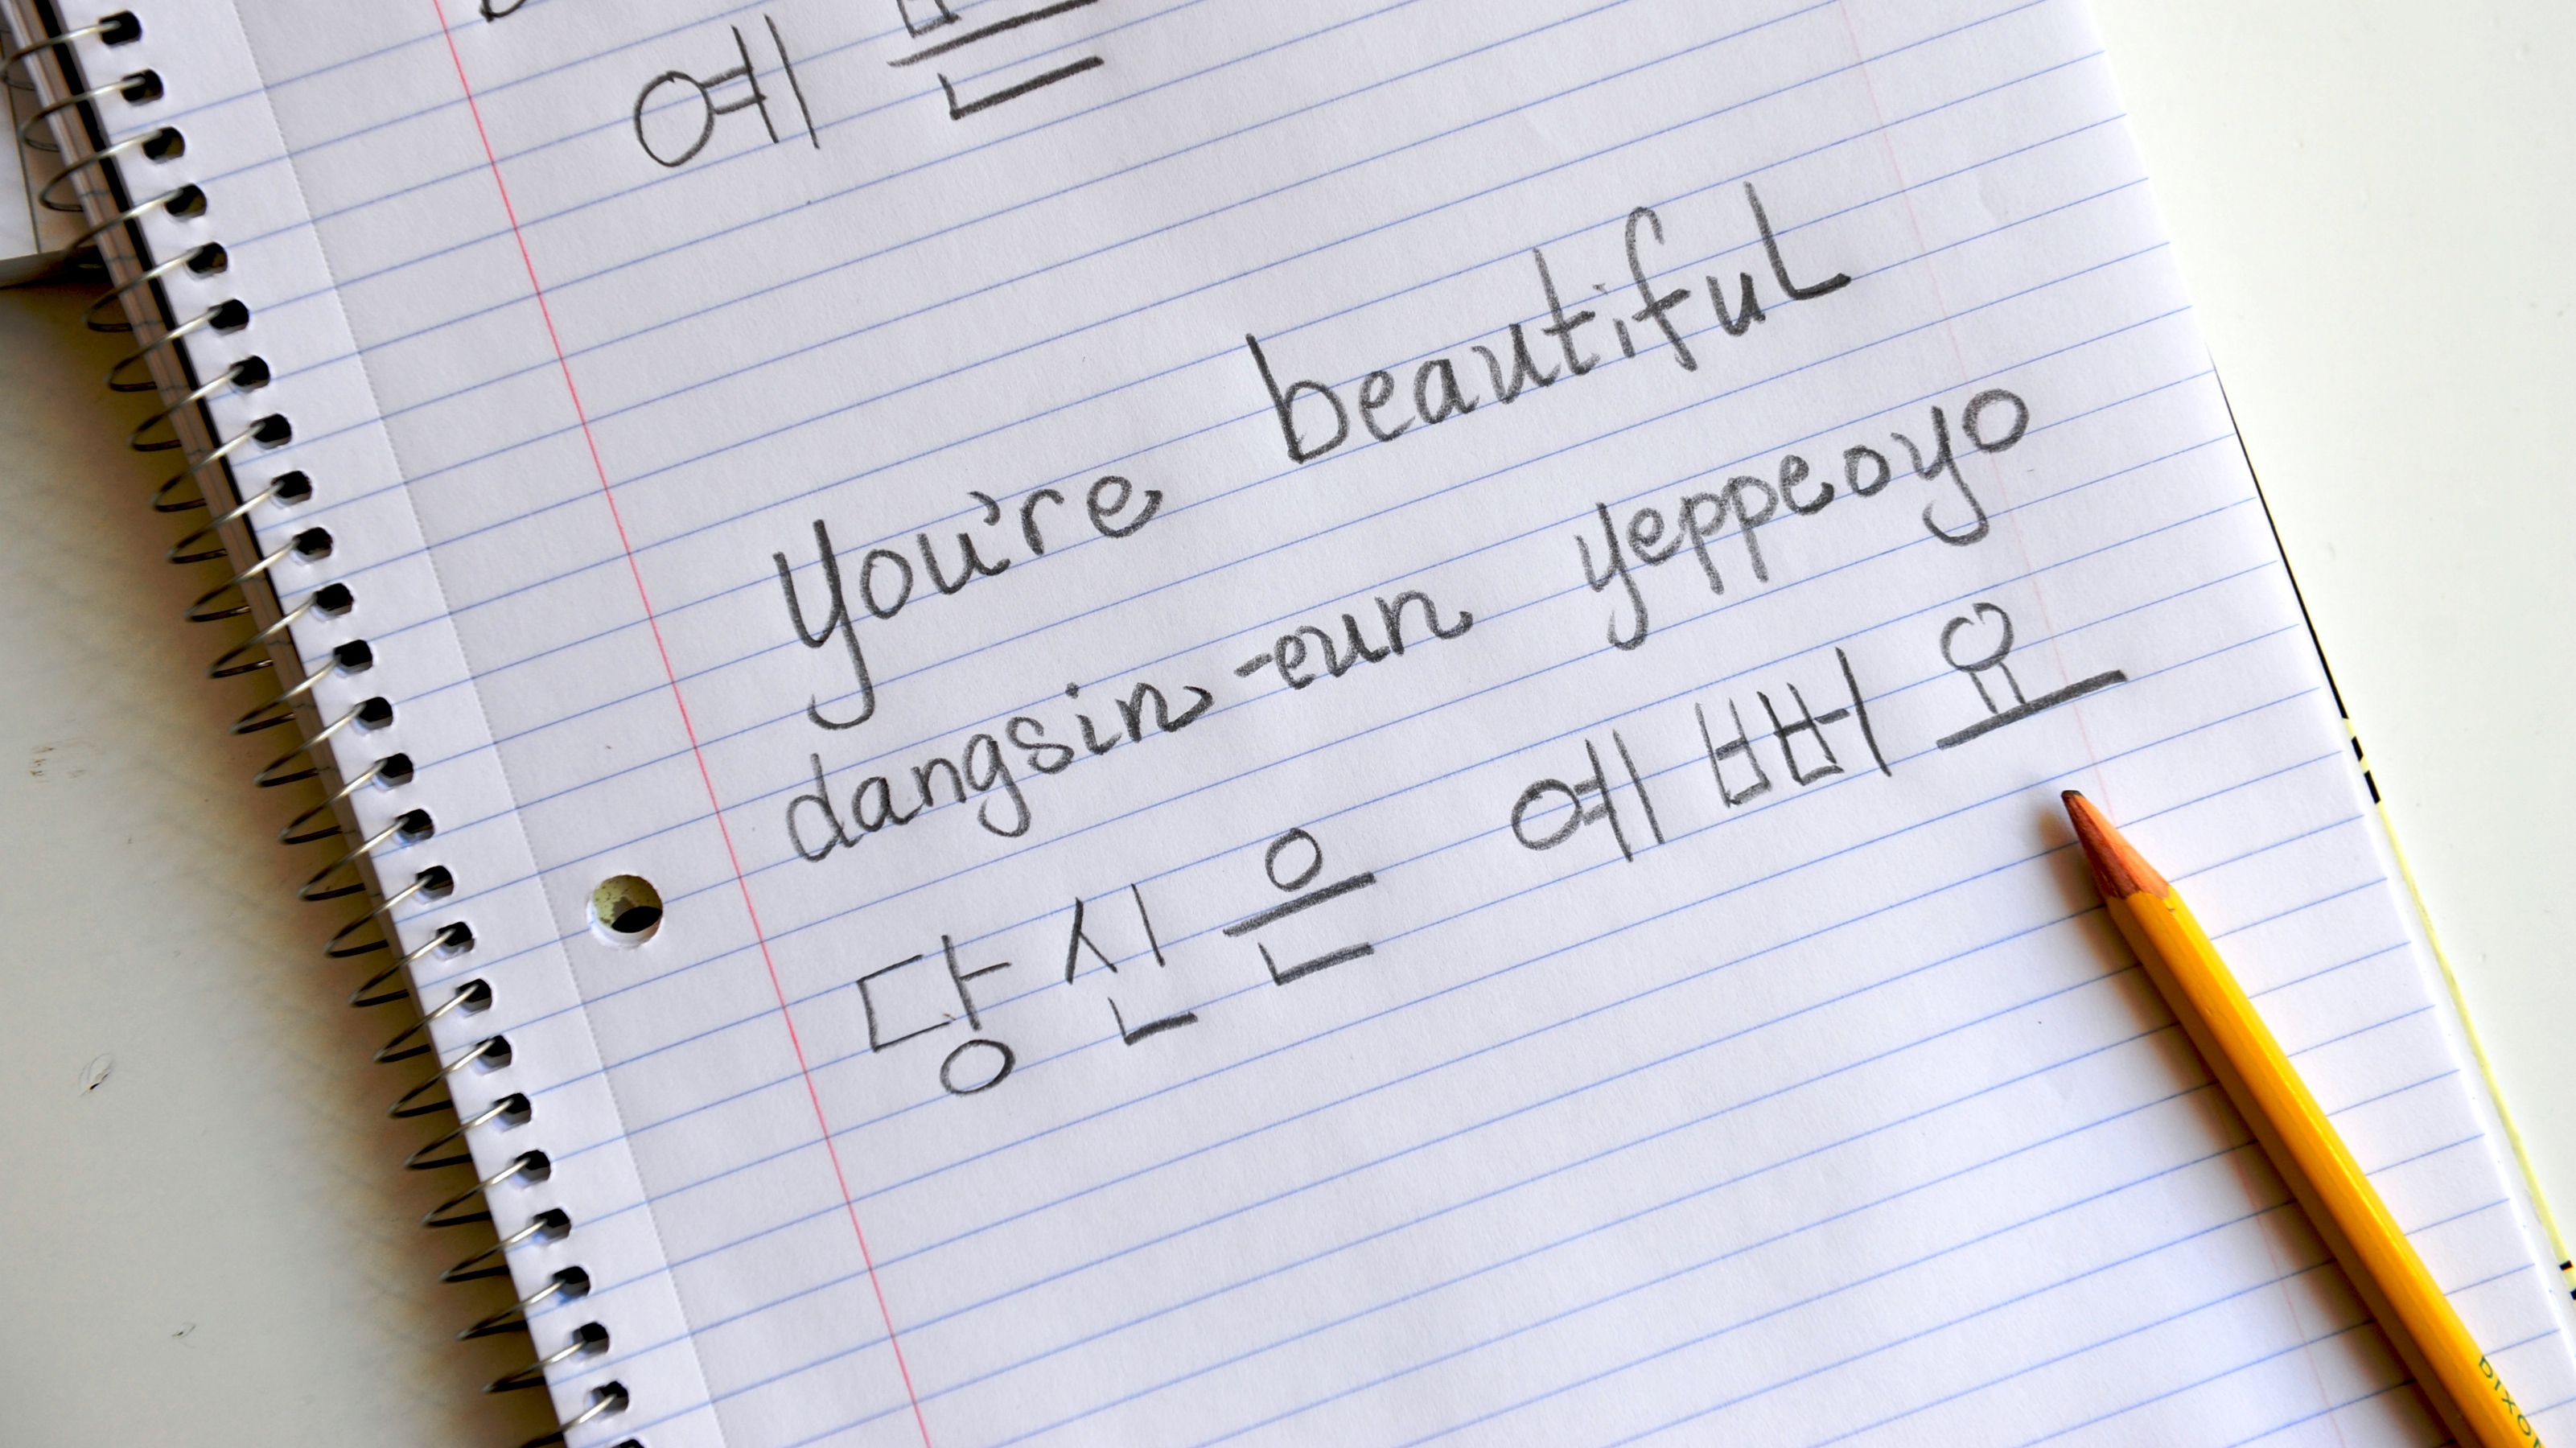 예쁜
you're beautiful
dangsin-eun yeppeoyo
당신은 예뻐요